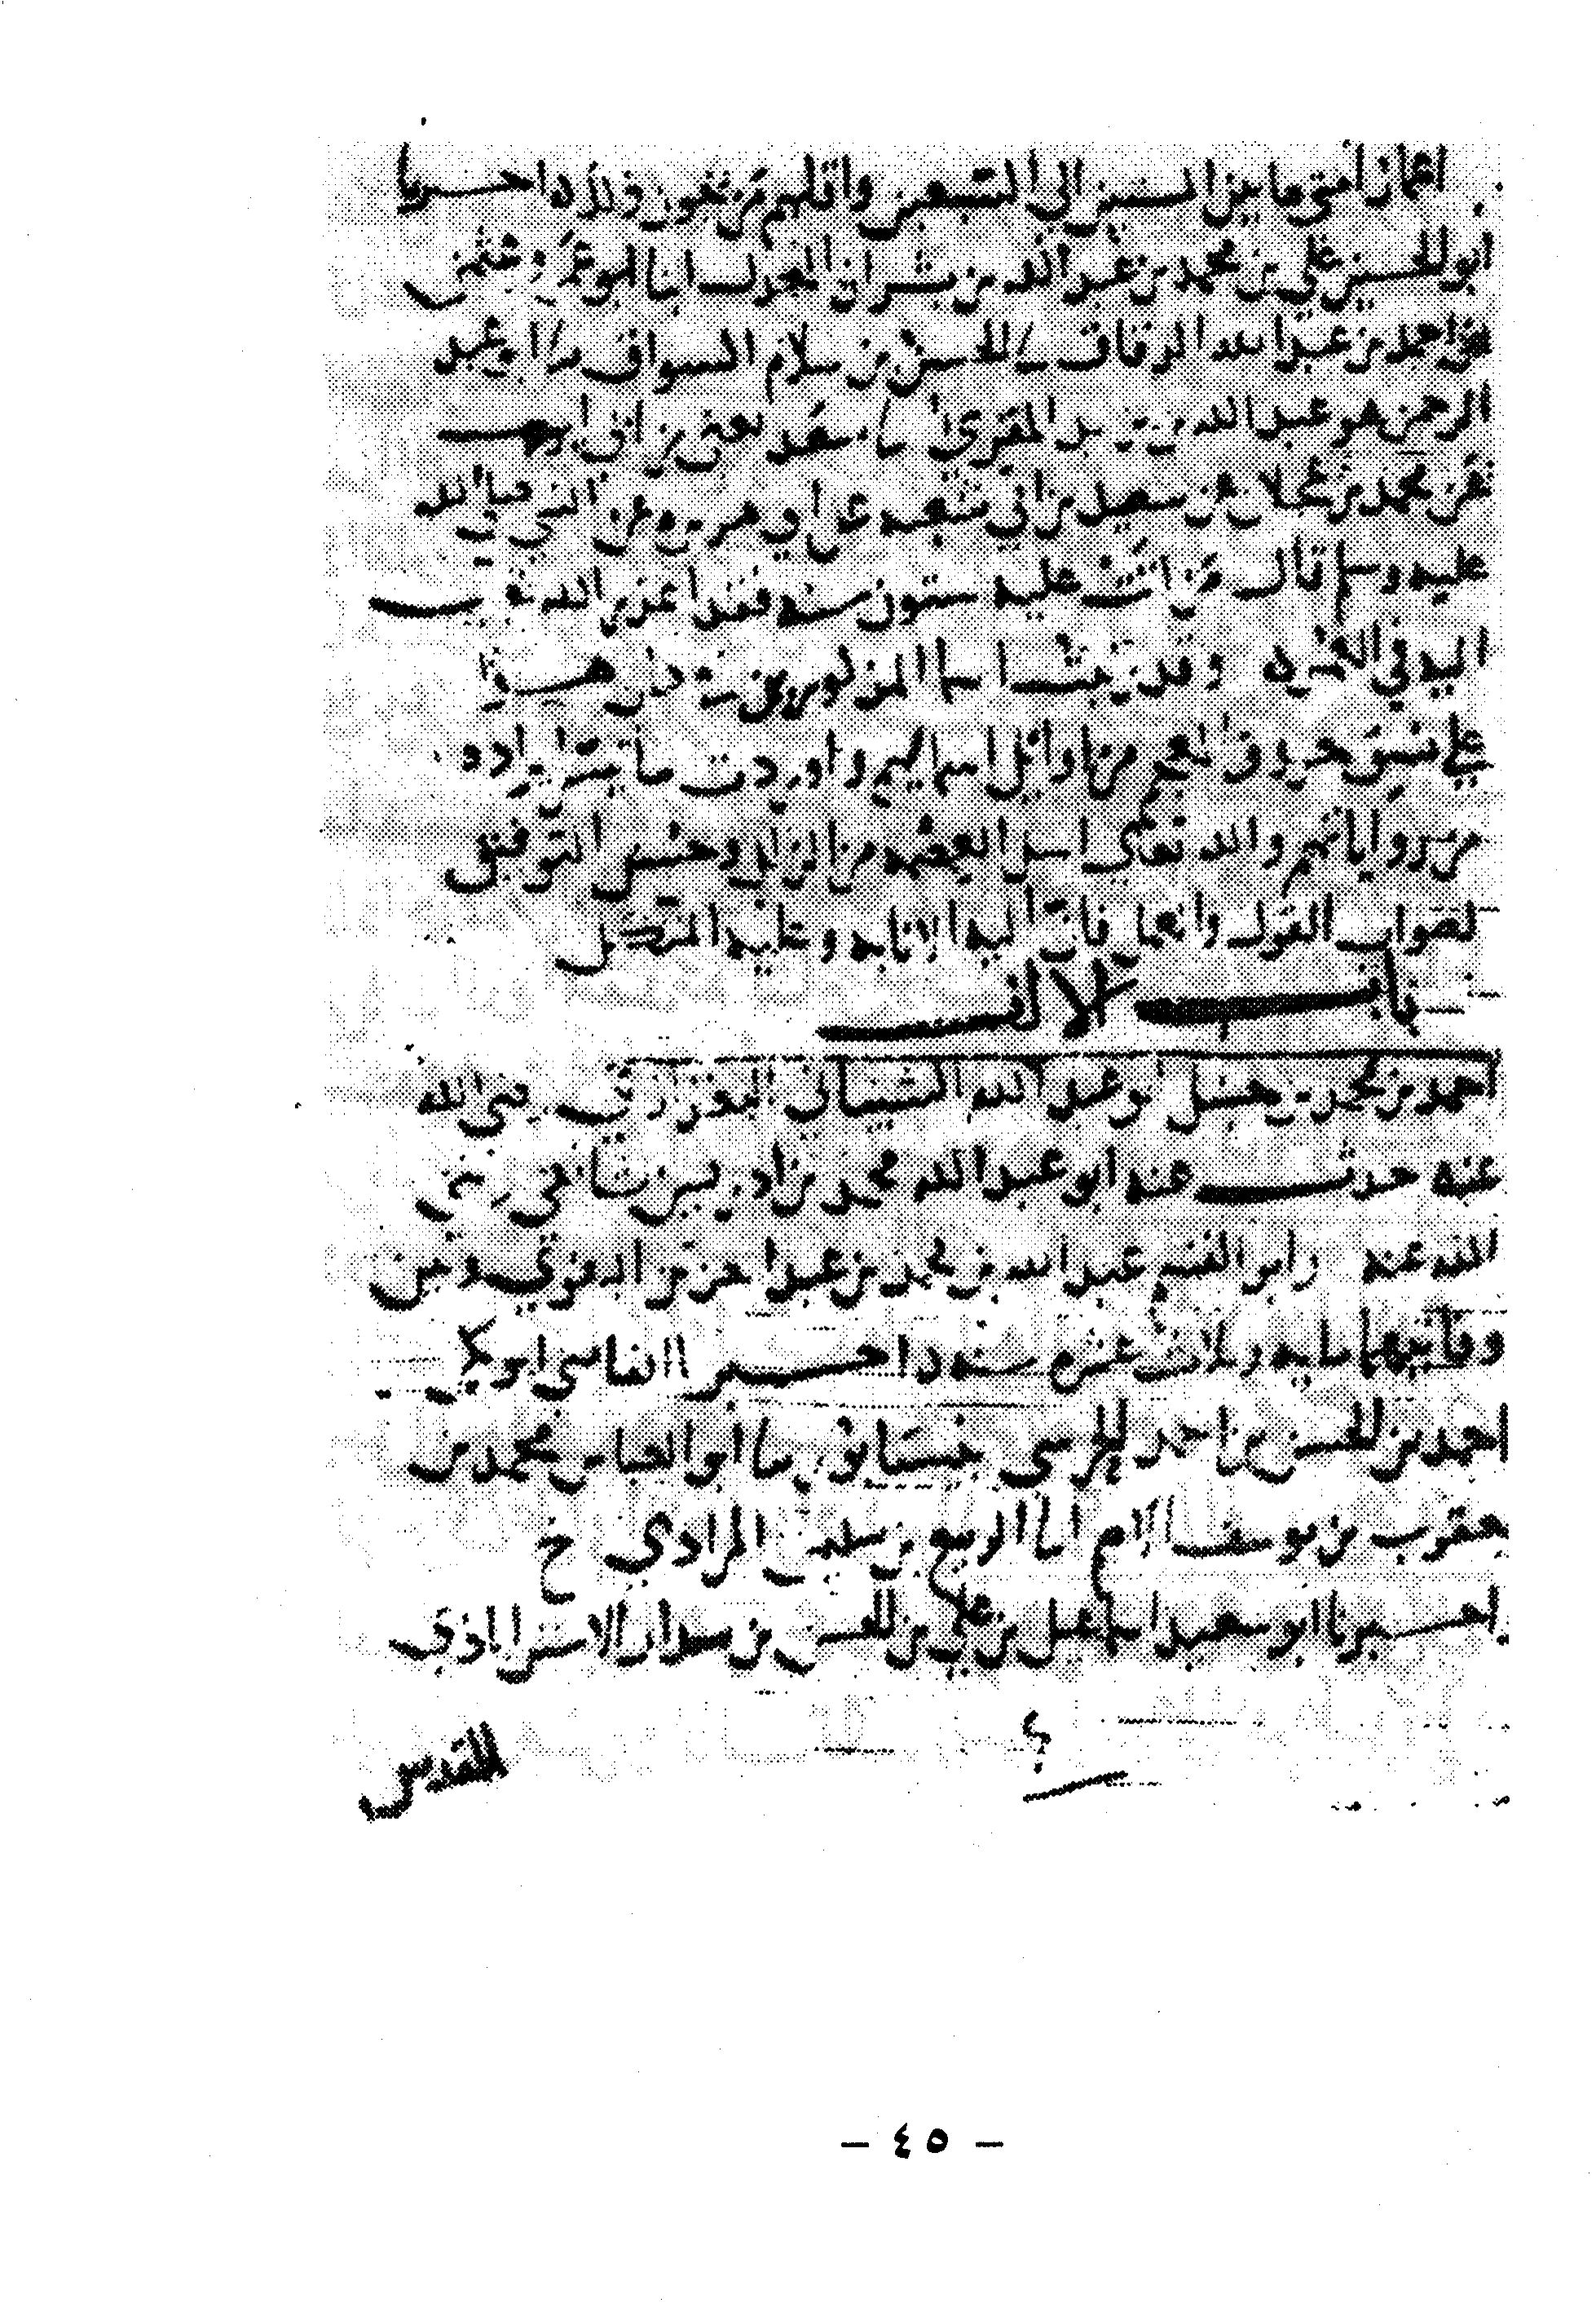 اعمار امتي ما بين الستين الى السبعين واقلهم من يجوز ذلك احـــبرنا
ابو الحسين علي بن محمد بن عبد الله بن بشران المعدل انا ابو عمرو عثمن
بن احمد بن عبد الله الدقاق الحسن بن سلام السواق ابو عبد
الرحمن هو عبد الله بن يزيد المقرئ سعيد يعني بن ابي ايوب
عن محمد بن عجلان عن سعيد بن ابي سعيد عن ابي هريرة عن النبي صلى الله
عليه وسلم قال من اتت عليه ستون سنه فقد اعذر الله
اليه في العمر وقد رتبت اسما المذكورين
على نسق حروف المعجم من اوائل اسمايهم واوردت ما تيسر ايراده
من رواياتهم والله تعالى اسل العصمه من الزلل وحسن التوفيق
لصواب القول والعمل فانه اليه الانابه وعليه المتوكل
باب الالف
احمد بن محمد بن حنبل ابو عبد الله الشيباني المروزي رضي الله
عنه حدث عنه ابو عبد الله محمد بن ادريس الشافعي رضي
الله عنه وابو القسم عبد الله بن محمد بن عبد العزيز البغوي وبين
وفاتيهما مايه وثلاث عشره سنه احـــبرنا القاضي ابو بكر
احمد بن الحسن بن احمد الحرسي بنيسابور ما ابو العباس محمد بن
يعقوب بن يوسف الاصم انا الربيع بن سليمن المرادي ح
واحـــبرنا ابو سعيد اسماعيل بن علي بن الحسن بن بندار الاستراباذي
المقدس
– ٤٥ –